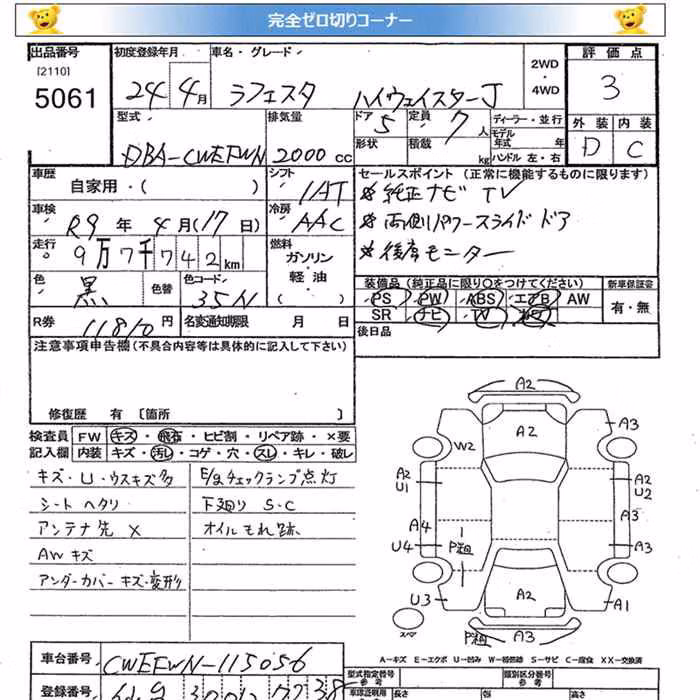 完全ゼロ切りコーナー
出品番号 初度登録年月 車名・グレード 2WD・4WD 評価点
[2110]
5061 24 4月 ラフェスタ ハイウェイスターJ 3
型式 排気量 ドア 5 定員 7人 ディーラー・並行 外装 内装
形状 積載 kg モデル年式 年 ハンドル 左・右
DBA-CWEFWN 2000cc D C
車歴 自家用・( ) シフト IAT セールスポイント (正常に機能するものに限ります)
※純正ナビ TV
車検 R9年4月(17日) 冷房 AAC ※両側パワースライドドア
走行 9万7千742km 燃料 ガソリン 軽・油 ( ) ※後席モニター
色 黒 色替 色コード 35N 装備品 (純正品に限り○をつけてください) 新車保証書
PS PW ABS エアB AW 有・無
SR ナビ TV
R券 11810円 名変通知期限 月 日 後日品
注意事項申告欄 (不具合内容等は具体的に記入して下さい)
修復歴 有 [箇所 ]
検査員 FW キズ・飛石・ヒビ割・リペア跡・×要
記入欄 内装 キズ・汚レ・コゲ・穴・スレ・キレ・破レ
キズ・U・ウスキズ多 E/gチェックランプ点灯
シートヘタリ 下廻りS・C
アンテナ先 X オイルもれ跡
AWキズ
アンダーカバーキズ・変形
A2
A2 A3
W2
A2 U1 A2 U2
A4 A3
1
P粗
U4 A3
U3 A2 A1
スペア P粗 A3
A-キズ E-エクボ U-凹み W-補修跡 S-サビ C-腐食 XX-交換済
車台番号 CWEFWN-115056
型式指定番号 類別区分番号
登録番号 長さ 幅 高さ